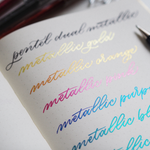 pentel dual metallic
metallic gold
metallic orange
metallic pink
metallic purp
metallic bl
metallic